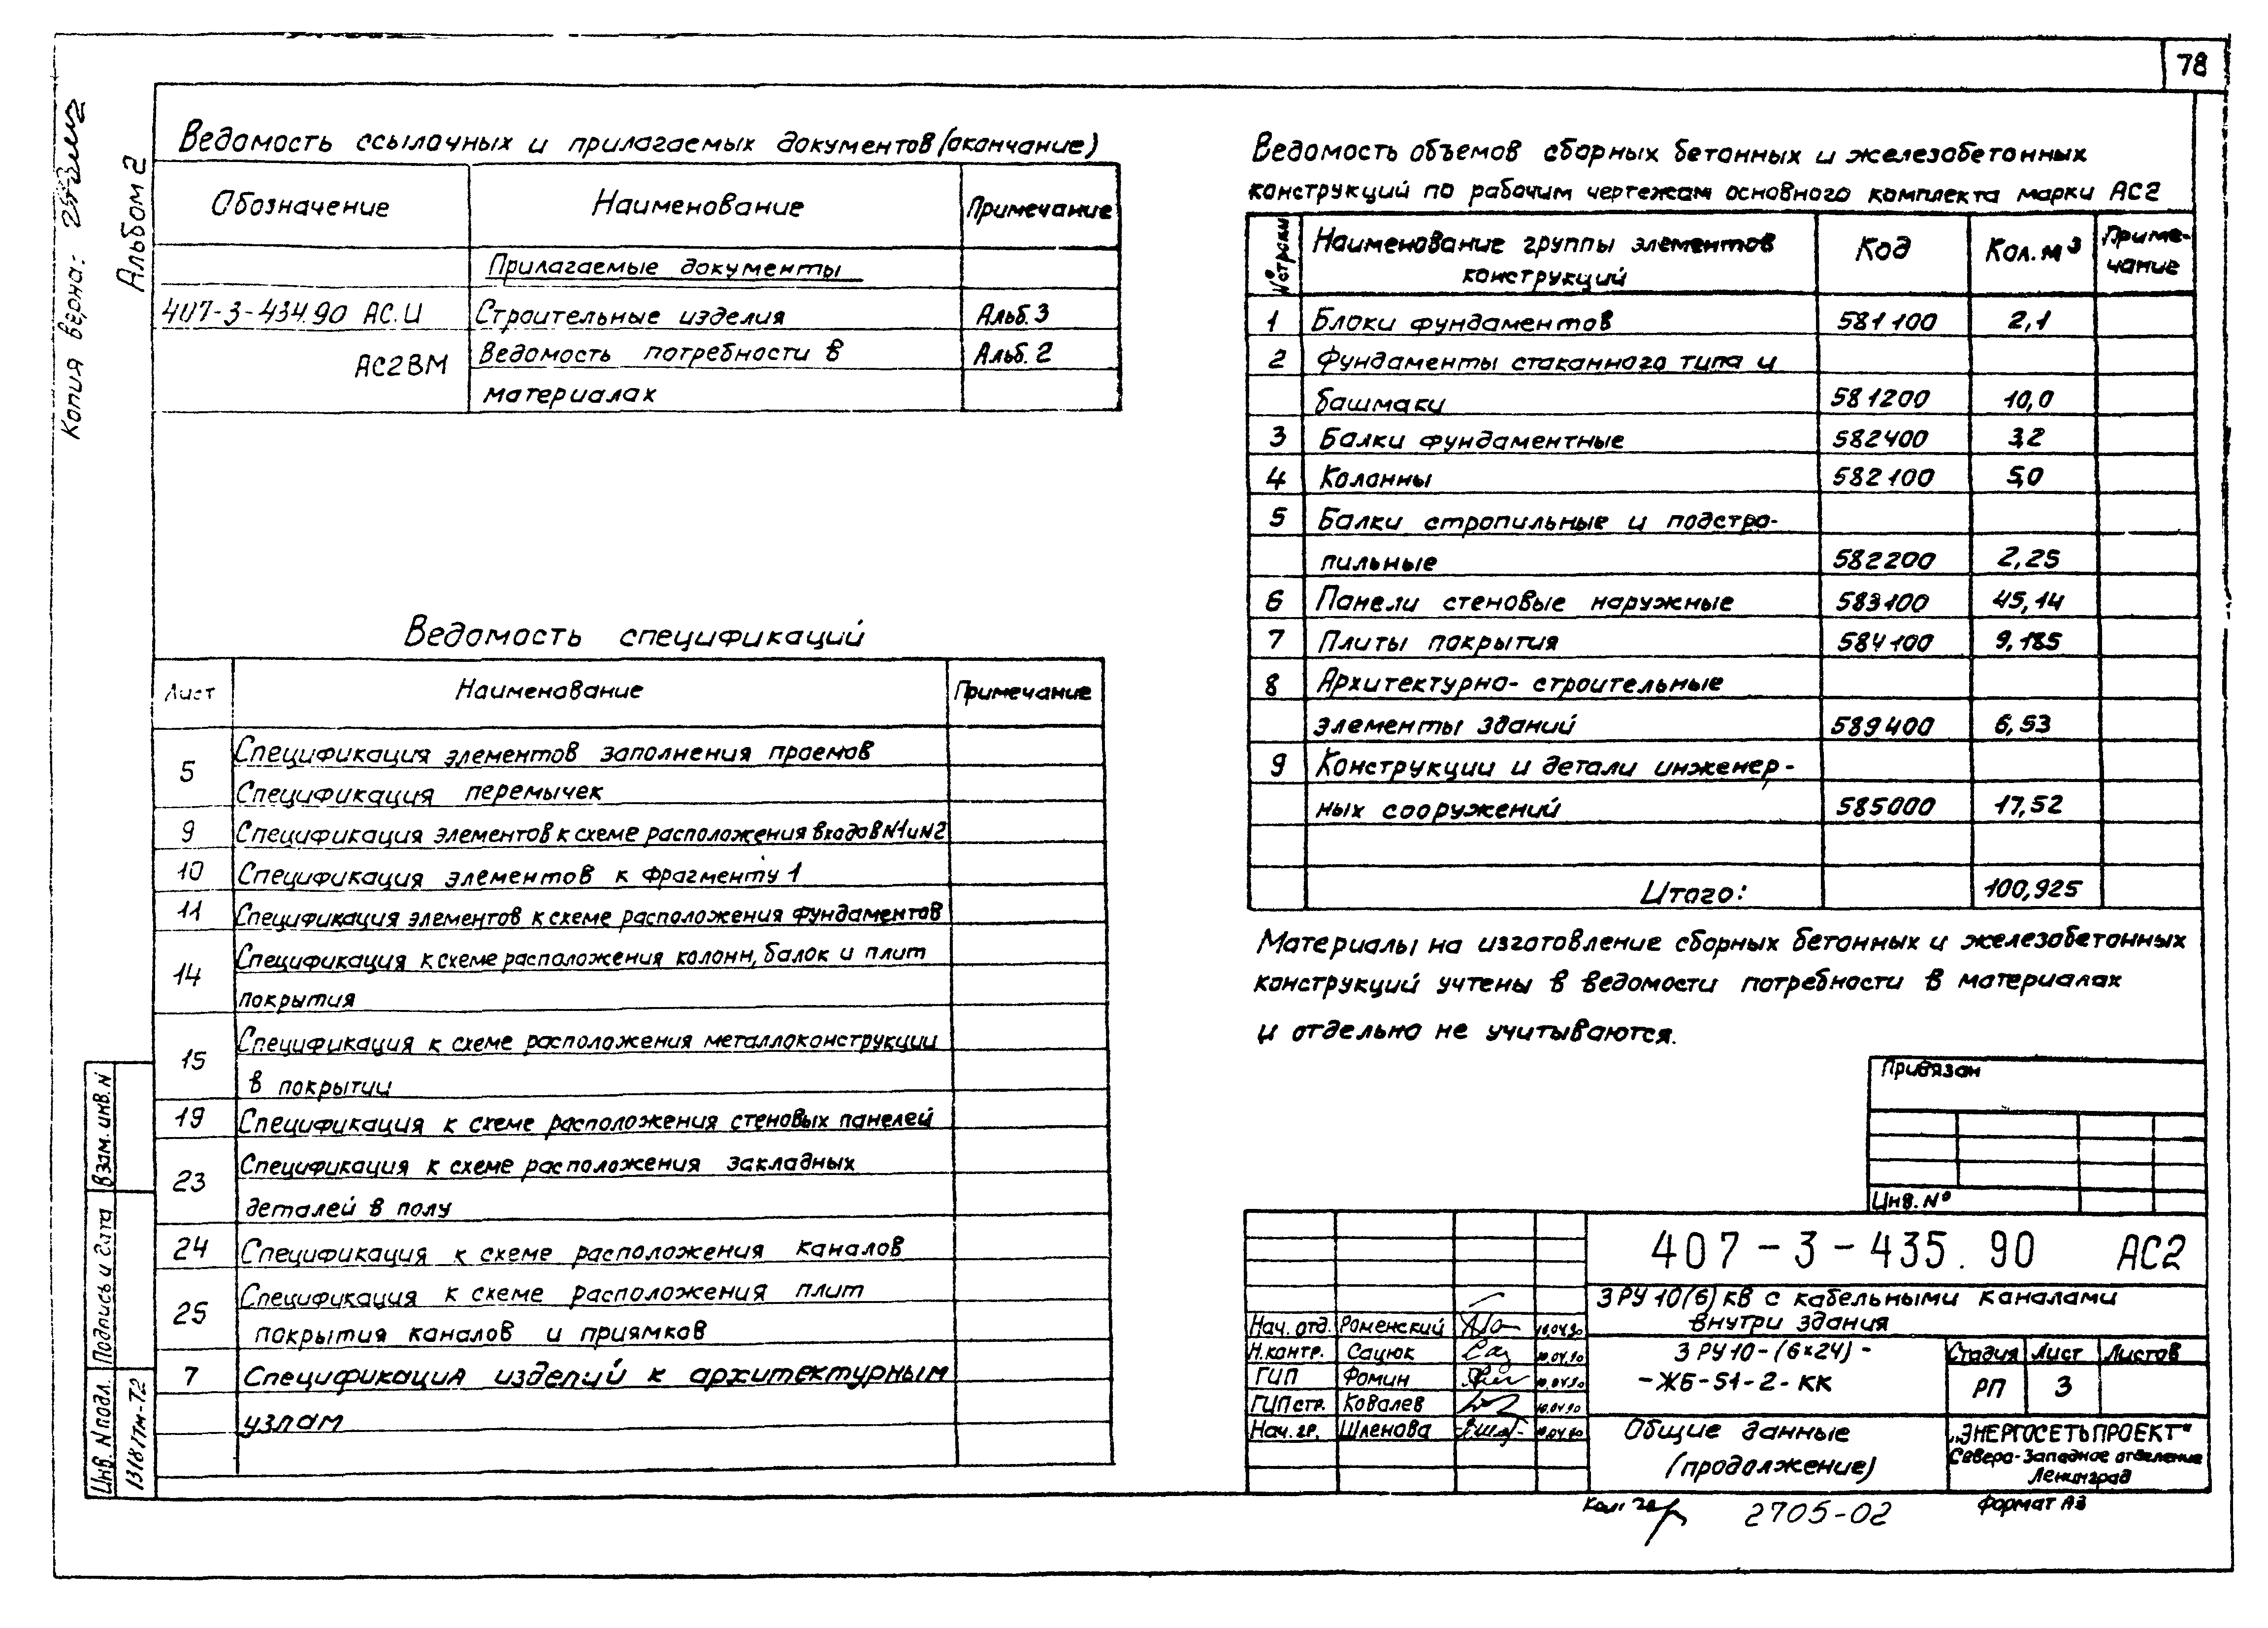 78
Копия верна:
Альбом 2
Ведомость ссылочных и прилагаемых документов (окончание)
Обозначение Наименование Примечание
Прилагаемые документы
407-3-434.90 АС.И Строительные изделия Альб.3
АС2ВМ Ведомость потребности в Альб. 2
материалах
Ведомость спецификаций
Лист Наименование Примечание
5 Спецификация элементов заполнения проемов
Спецификация перемычек
9 Спецификация элементов к схеме расположения входов N1 и N2
10 Спецификация элементов к фрагменту 1
11 Спецификация элементов к схеме расположения фундаментов
14 Спецификация к схеме расположения колонн, балок и плит
покрытия
15 Спецификация к схеме расположения металлоконструкции
в покрытии
19 Спецификация к схеме расположения стеновых панелей
23 Спецификация к схеме расположения закладных
деталей в полу
24 Спецификация к схеме расположения каналов
25 Спецификация к схеме расположения плит
покрытия каналов и приямков
7 Спецификация изделий к архитектурным
узлам
Взам. инв. N
Подпись и дата
Инв. N подл.
13187тм-Т2
Ведомость объемов сборных бетонных и железобетонных
конструкций по рабочим чертежам основного комплекта марки АС2
N° строки Наименование группы элементов конструкций Код Кол. м3 Приме-чание
1 Блоки фундаментов 581100 2,1
2 Фундаменты стаканного типа и
башмаки 581200 10,0
3 Балки фундаментные 582400 3,2
4 Колонны 582100 5,0
5 Балки стропильные и подстро-
пильные 582200 2,25
6 Панели стеновые наружные 583100 45,14
7 Плиты покрытия 584100 9,185
8 Архитектурно-строительные
элементы зданий 589400 6,53
9 Конструкции и детали инженер-
ных сооружений 585000 17,52
Итого: 100,925
Материалы на изготовление сборных бетонных и железобетонных
конструкций учтены в ведомости потребности в материалах
и отдельно не учитываются.
Привязан
Инв. N°
407-3-435.90 АС2
ЗРУ 10(6) кВ с кабельными каналами
внутри здания
Нач. отд. Роменский 10.04.90
Н.контр. Сацюк 10.04.90
ГИП Фомин 10.04.90
ГИП стр. Ковалев 10.04.90
Нач. гр. Шленова 10.04.90
ЗРУ10-(6×24)-
-ЖБ-51-2-КК
Стадия Лист Листов
РП 3
Общие данные
(продолжение)
„ЭНЕРГОСЕТЬПРОЕКТ"
Северо-Западное отделение
Ленинград
2705-02
Формат А3